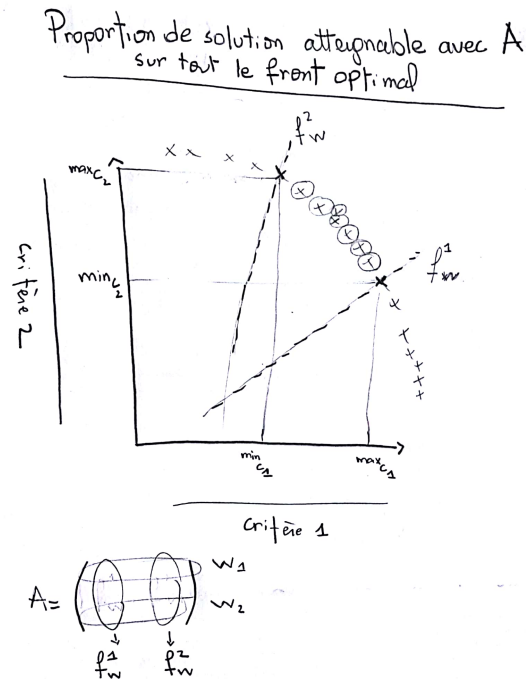 Proportion de solution atteignable avec A
sur tout le front optimal
f²w
max C2
Critère 2
min C2
f¹w
min C1
max C1
Critère 1
A=
W1
W2
f¹w
f²w